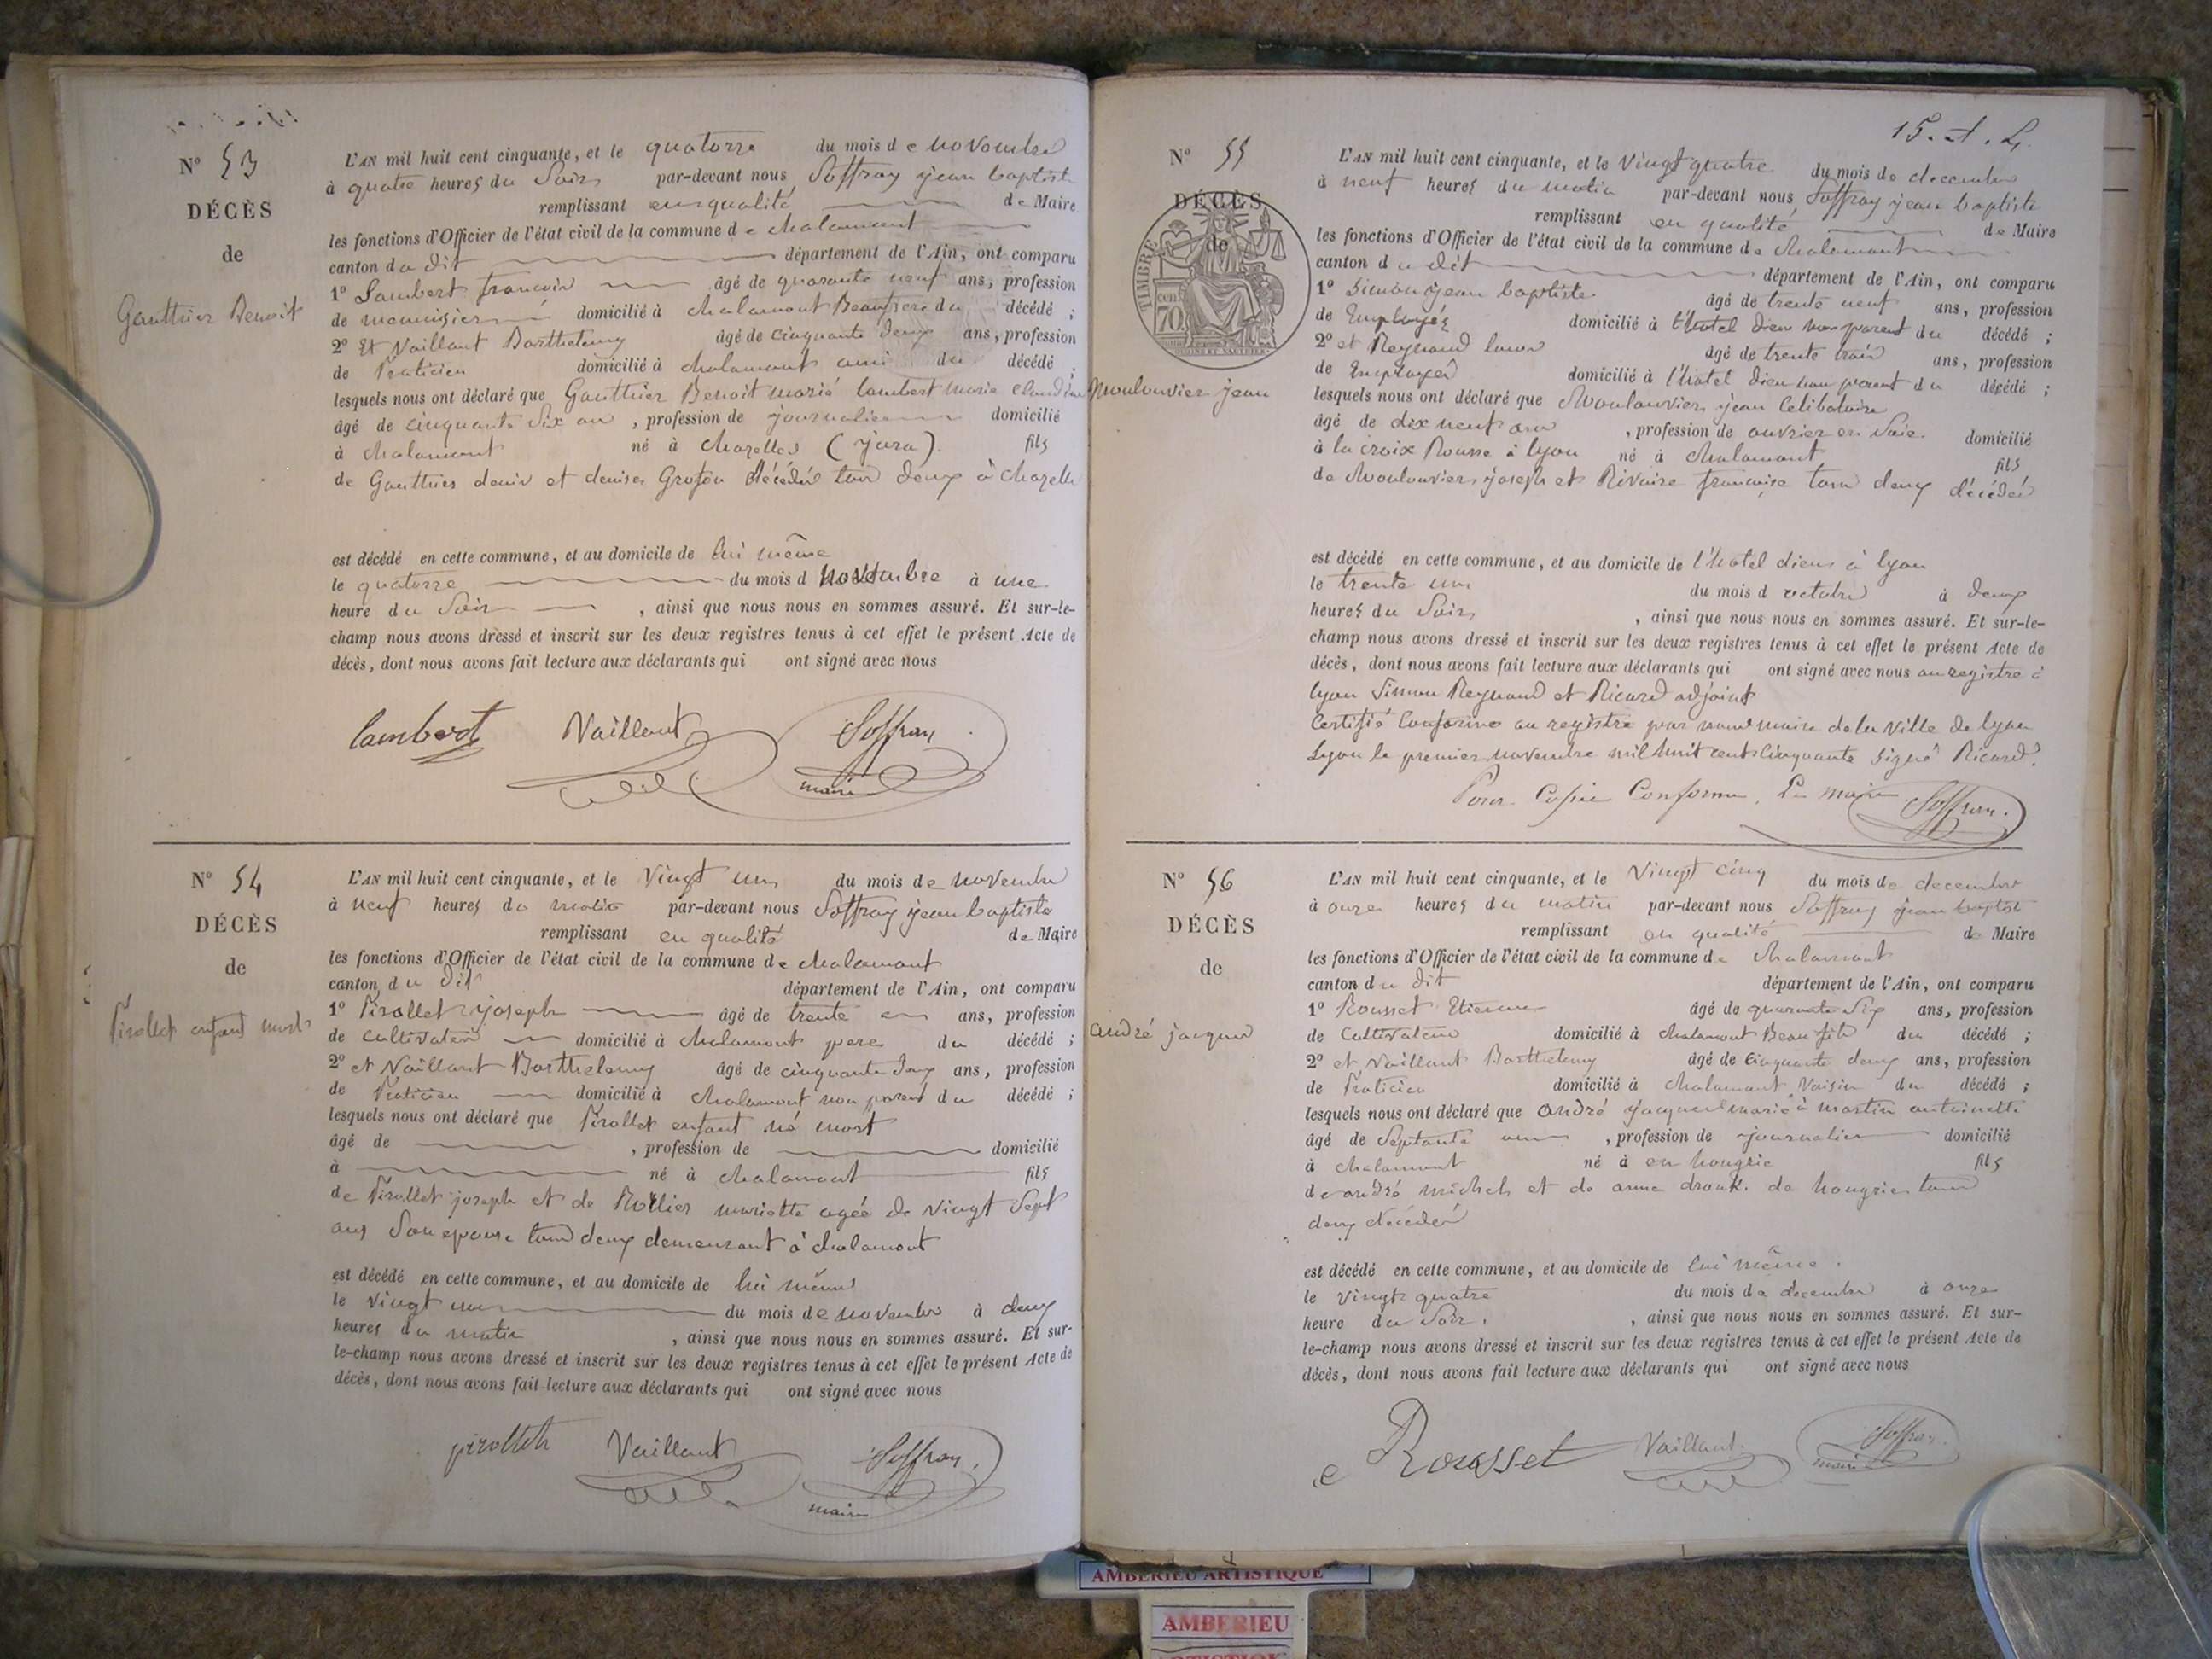 N° 53
DÉCÈS
de
Gauthier Benoit
L'AN mil huit cent cinquante, et le quatorze du mois de novembre
à quatre heures du Soir par-devant nous Soffray jean baptiste
remplissant en qualité de Maire
les fonctions d'Officier de l'état civil de la commune de chalamont
canton du dit département de l'Ain, ont comparu
1° Lambert francois âgé de quarante neuf ans, profession
de menuisier domicilié à chalamont Beaufrere du décédé ;
2° Et Vaillant Barthelemy âgé de cinquante deux ans, profession
de Praticien domicilié à chalamont ami du décédé ;
lesquels nous ont déclaré que Gauthier Benoit marié lambert marie claudine
âgé de cinquante Six ans, profession de journalier domicilié
à chalamont né à chazelles (jura). fils
de Gauthier denis et denise décédés tous deux à chazelle
est décédé en cette commune, et au domicile de lui même
le quatorze du mois d novembre à une
heure du Soir, ainsi que nous nous en sommes assuré. Et sur-le-
champ nous avons dressé et inscrit sur les deux registres tenus à cet effet le présent Acte de
décès, dont nous avons fait lecture aux déclarants qui ont signé avec nous
lambert Vaillant Soffray
maire
N° 54
DÉCÈS
de
Pirollet enfant mort
L'AN mil huit cent cinquante, et le Vingt un du mois de novembre
à neuf heures du matin par-devant nous Soffray jean baptiste
remplissant en qualité de Maire
les fonctions d'Officier de l'état civil de la commune de chalamont
canton du dit département de l'Ain, ont comparu
1° Pirollet joseph âgé de trente ans, profession
de cultivateur domicilié à chalamont pere du décédé ;
2° et Vaillant Barthelemy âgé de cinquante deux ans, profession
de Praticien domicilié à chalamont non parent du décédé ;
lesquels nous ont déclaré que Pirollet enfant né mort
âgé de , profession de domicilié
à né à chalamont fils
de Pirollet joseph et de Mollier mariette agée de Vingt Sept
ans Son epouse tous deux demeurant à chalamont
est décédé en cette commune, et au domicile de lui même
le vingt un du mois de novembre à deux
heures du matin, ainsi que nous nous en sommes assuré. Et sur-
le-champ nous avons dressé et inscrit sur les deux registres tenus à cet effet le présent Acte de
décès, dont nous avons fait lecture aux déclarants qui ont signé avec nous
pirollet Vaillant Soffray
maire
15.
N° 55
DÉCÈS
de
TIMBRE
cen
70
Moulouvier jean
L'AN mil huit cent cinquante, et le Vingt quatre du mois de decembre
à neuf heures du matin par-devant nous Soffray jean baptiste
remplissant en qualité de Maire
les fonctions d'Officier de l'état civil de la commune de chalamont
canton du dit département de l'Ain, ont comparu
1° Simon jean baptiste âgé de trente neuf ans, profession
de Employé domicilié à l'hotel dieu non parent du décédé ;
2° et Reynaud louis âgé de trente trois ans, profession
de Employé domicilié à l'hotel dieu non parent du décédé ;
lesquels nous ont déclaré que Moulouvier jean Celibataire
âgé de dix neuf ans, profession de ouvrier en Soie domicilié
à la croix Rousse à lyon né à chalamont fils
de Moulouvier joseph et Rivoire francoise tous deux décédés
est décédé en cette commune, et au domicile de l'hotel dieu à lyon
le trente un du mois d octobre à deux
heures du Soir, ainsi que nous nous en sommes assuré. Et sur-le-
champ nous avons dressé et inscrit sur les deux registres tenus à cet effet le présent Acte de
décès, dont nous avons fait lecture aux déclarants qui ont signé avec nous au registre à
lyon Simon Reynaud et Ricard adjoint
Certifié Conforme au registre par nous maire de la Ville de lyon
Lyon le premier novembre mil huit cent cinquante Signé Ricard.
Pour Copie Conforme, Le maire Soffray.
N° 56
DÉCÈS
de
andré jacques
L'AN mil huit cent cinquante, et le Vingt cinq du mois de decembre
à onze heures du matin par-devant nous Soffray jean baptiste
remplissant en qualité de Maire
les fonctions d'Officier de l'état civil de la commune de chalamont
canton du dit département de l'Ain, ont comparu
1° Rousset Etienne âgé de quarante Six ans, profession
de Cultivateur domicilié à chalamont Beau fils du décédé ;
2° et Vaillant Barthelemy âgé de Cinquante deux ans, profession
de Praticien domicilié à chalamont Voisin du décédé ;
lesquels nous ont déclaré que andré jacques marié à martin antoinette
âgé de Septante ans, profession de journalier domicilié
à chalamont né à en hongrie fils
de andré michel et de anne de hongrie tous
deux décédés
est décédé en cette commune, et au domicile de lui même.
le vingt quatre du mois de decembre à onze
heure du Soir, ainsi que nous nous en sommes assuré. Et sur-
le-champ nous avons dressé et inscrit sur les deux registres tenus à cet effet le présent Acte de
décès, dont nous avons fait lecture aux déclarants qui ont signé avec nous
e Rousset Vaillant Soffray
maire
AMBERIEU ARTISTIQUE
AMBERIEU